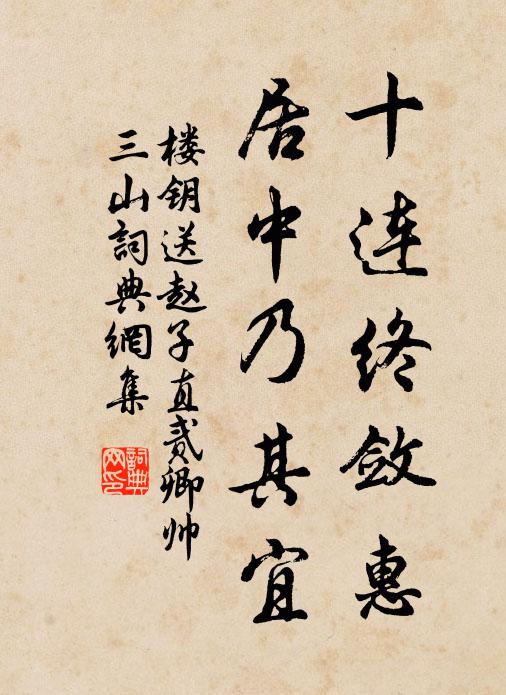 十连终敛惠
居中乃其宜
楼钥送赵子直贰卿帅
三山詞典網集
詞典网印